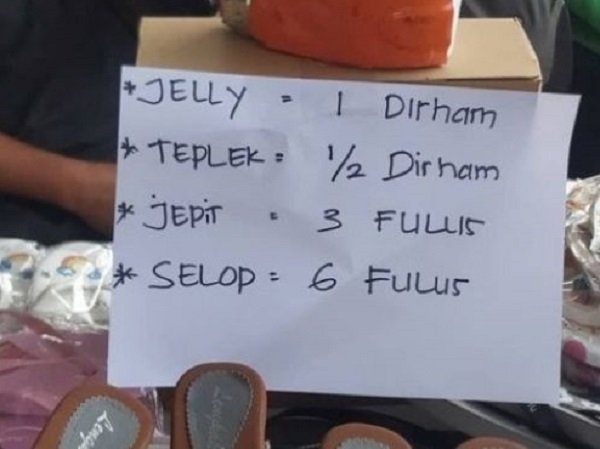 * JELLY = 1 Dirham
* TEPLEK = 1/2 Dirham
* JEPIT = 3 FULUS
* SELOP = 6 FULUS